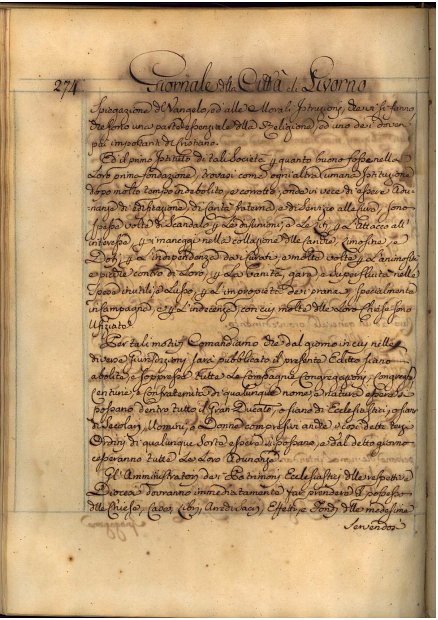 274 Giornale della Città di Livorno
Spiegazione del Vangelo, ed alle Morali Istruzioni, che vi si fanno,
che sono una parte essenziale della Religione, ed uno dei doveri
più importanti del Cristiano.
Ed il primo Istituto di tali Società p quanto buono fosse nella
Loro prima fondazione, trovasi come ogni altra umana Istituzione
dopo molto tempo indebolito, e corrotto, onde in vece di essere Adu-
nanze di Edificazione, di Carità fraterna, e di Servizio alle cure, sono
spesse volte di Scandalo p Le Disunioni, e Le Liti, p L'attacco all'
interesse, p i maneggi nella collazione delle Cariche, Limosine, e
Doti, p L'indipendenza dai Curati, e molte volte p L'animosità
e picche contro di Loro, p La Vanità, gara, e superfluità nelle
spese inutili, e Lusso, p L'improprietà dei pranzi, specialmente
in campagna, e p L'indecenza con cui molte delle Loro Chiese sono
Ufiziate.
Per tali motivi Comandiamo che dal giorno in cui nelle
diverse Giurisdizioni sarà pubblicato il presente Editto siano
abolite, e soppresse tutte Le Compagnie, Congregazioni, Congreghe
Centurie, e Confraternite di qualunque nome, e natura essere si
possano dentro tutto il Gran Ducato, o siano di Ecclesiastici, o siano
di Secolari, Uomini, o Donne compresivi anche i così detti terzi
Ordini di qualunque Sorte essere si possano, e dal detto giorno
cesseranno tutte Le Loro Adunanze.
Gl'Amministratori dei Patrimoni Ecclesiastici delle respettive
Diocesi dovranno immediatamente far prendere il possesso
delle Chiese, Case, Libri, Arredi Sacri, Effetti, e Fondi delle medesime
Servendosi